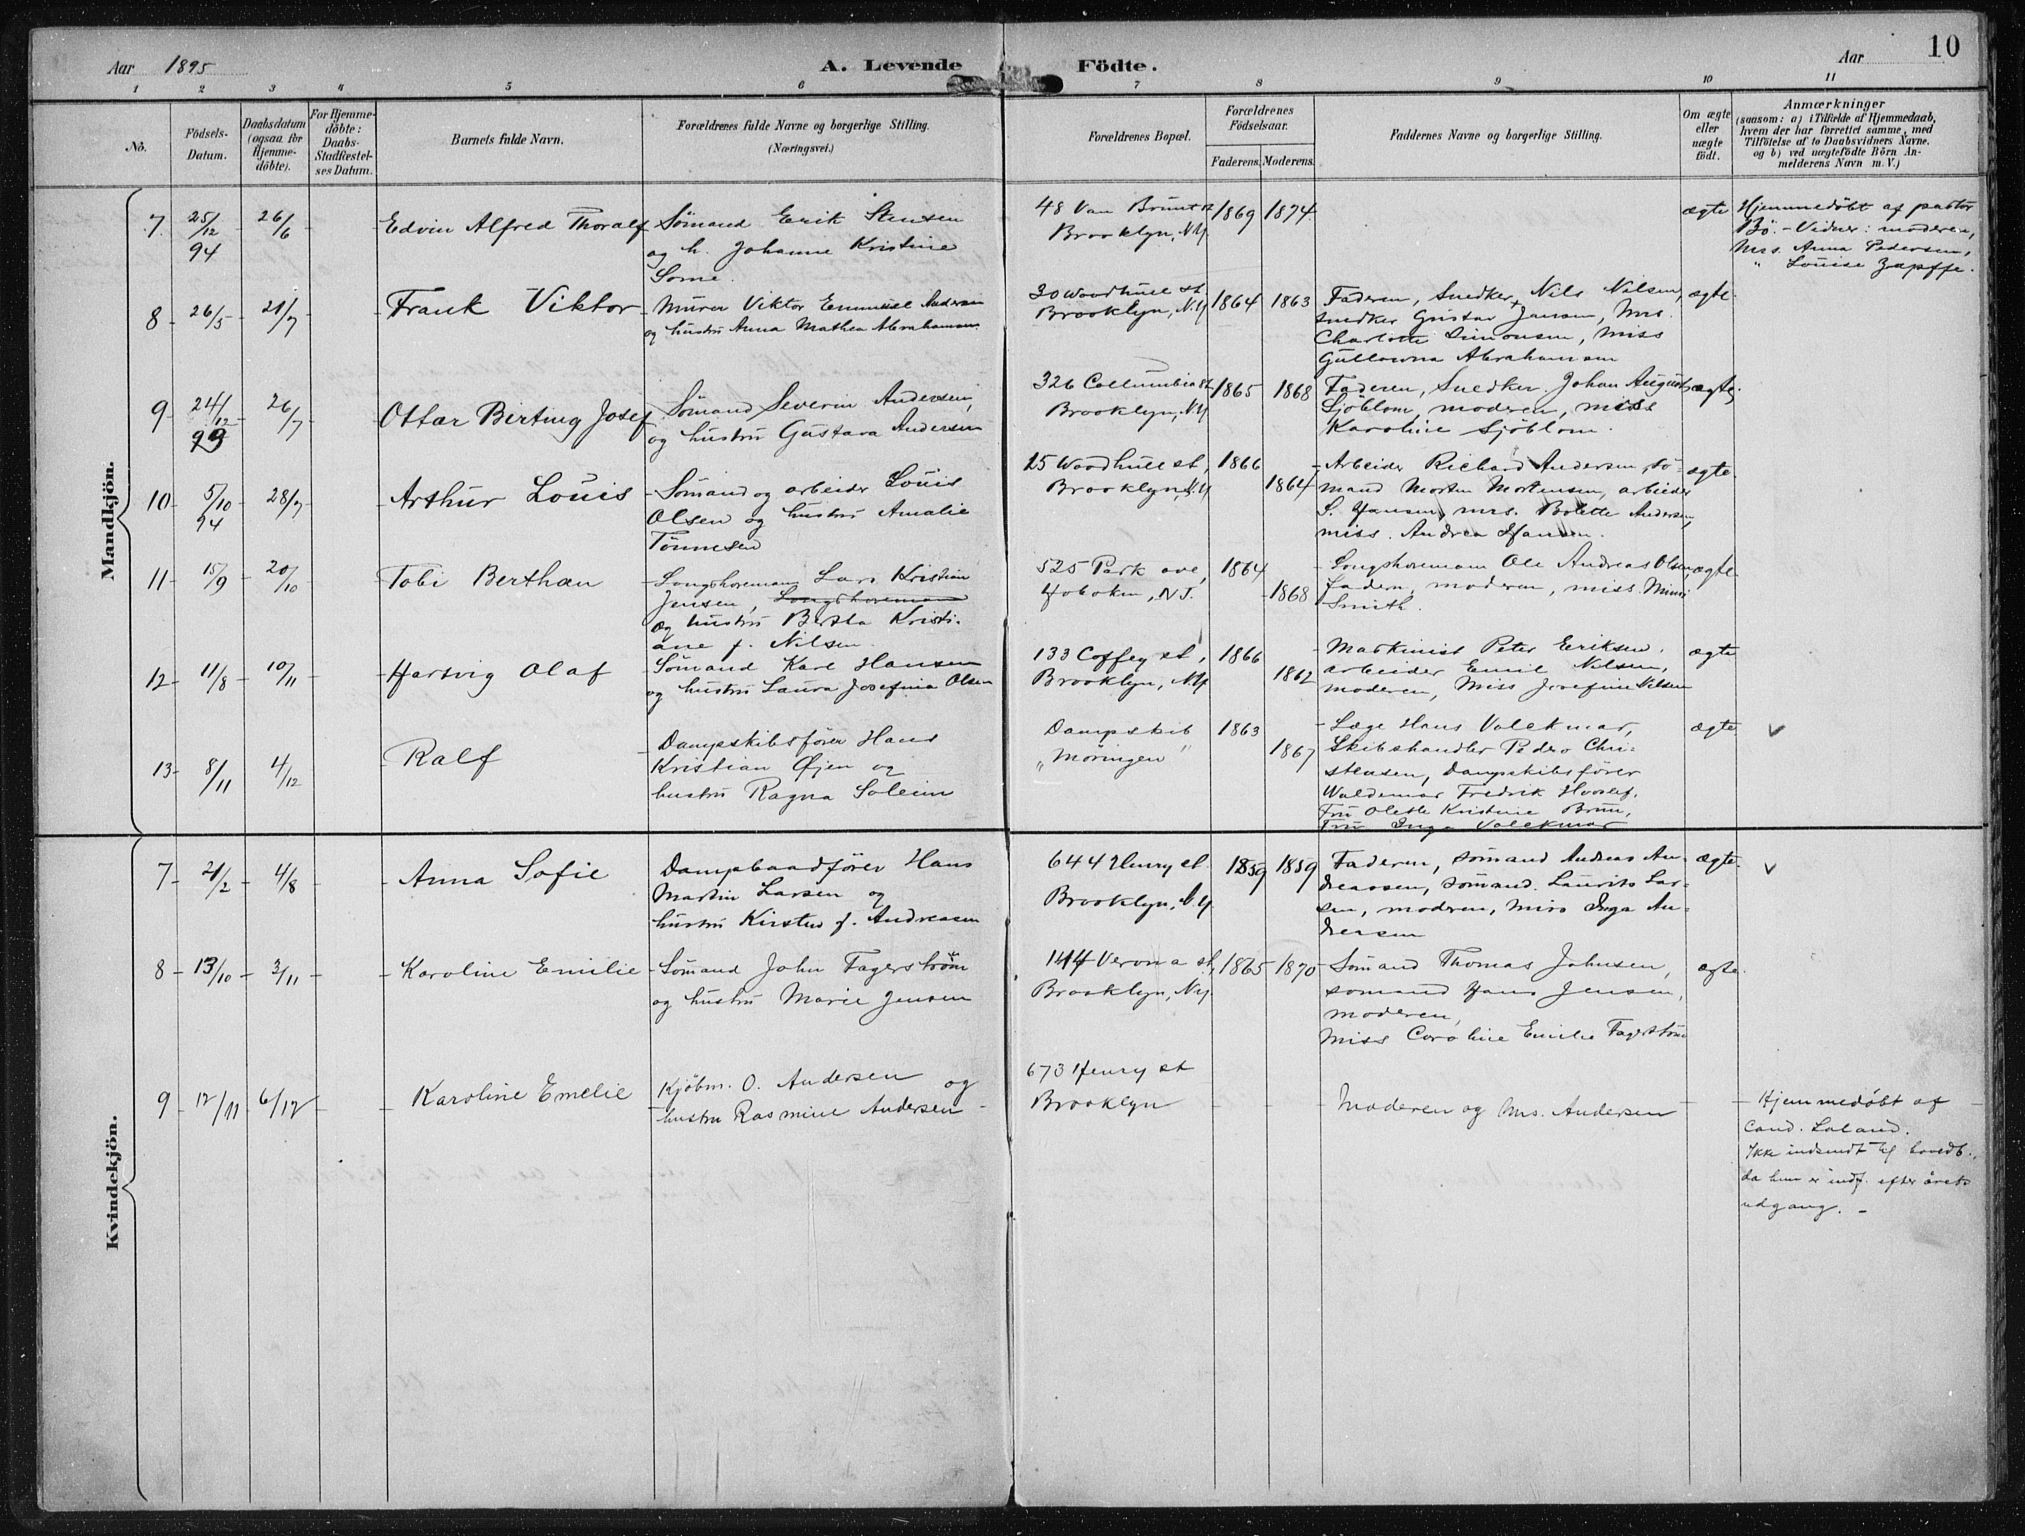 Aar 1895 A. Levende Födte. Aar 10
1 2 3 4 5 6 7 8 9 10 11
No.
Födsels-
Datum.
Daabsdatum
(ogsaa for
Hjemme-
döbte).
For Hjemme-
döbte:
Daabs-
Stadfæstel-
ses Datum.
Barnets fulde Navn.
Forældrenes fulde Navne og borgerlige Stilling.
(Næringsvei.)
Forældrenes Bopæl.
Forældrenes
Födselsaar.
Faderens. Moderens.
Faddernes Navne og borgerlige Stilling.
Om ægte
eller
uægte
födt.
Anmærkninger
(saasom: a) i Tilfælde af Hjemmedaab,
hvem der har forrettet samme, med
Tilföielse af to Daabsvidners Navne.
og b) ved uægtefödte Börn An-
melderens Navn m. V.)
Mandkjön.
7 25/12 94 26/6 Edvin Alfred Thoralf
Sømand Erik Stensen
og h. Johanne Kristine
Sorne.
48 Van Brunt st
Brooklyn, N.Y.
1869 1874
ægte
Hjemmedøbt af pastor
Bö. - Vidner: moderen,
Mrs. Anna Pedersen,
" Louise Zapffe.
8 26/5 21/7 Frank Viktor
Murer Viktor Emanuel Andersen
og hustru Anna Mathea Abrahamsen
30 Woodhull st
Brooklyn, N.Y.
1864 1863
Faderen, Snedker Nils Nilsen,
snedker Gustav Jansen, Mrs.
Charlotte Simonsen, Miss
Abrahamsen
ægte
9 24/12 93 26/7 Ottar Birting Josef
Sømand Severin Andersen,
og hustru Gustava Andersen
326 Collumbia st
Brooklyn, N.Y.
1865 1868
Faderen, Snedker Johan August
Sjöblom, moderen, miss
Karoline Sjöblom.
ægte
10 5/10 94 28/7 Arthur Louis
Sømand og arbeider Louis
Olsen og hustru Amalie
Tönnesen
25 Woodhull st,
Brooklyn, N.Y.
1866 1864
Arbeider Richard Andersen, sö-
mand Morten Mortensen, arbeider
S. Hansen, mrs. Bolette Andersen,
miss. Andrea Hansen.
ægte
11 15/9 20/10 Tobi Berthan
Longshoreman Lars Kristian
Jensen, Longshoreman
og hustru Berta Kristi-
ane f. Nilsen.
525 Park ave,
Hoboken, N.J.
1864 1868
Longshoreman Ole Andreas Olsen,
fadern, moderen, miss. Minni
Smith.
ægte
12 11/8 10/11 Hartvig Olaf
Sømand Karl Hansen
og hustru Laura Josefina Olsen
133 Coffey st,
Brooklyn, N.Y.
1866 1862
Maskinist Peter Eriksen.
arbeider Emil Nilsen,
moderen, Miss Josefine Nilsen
ægte
13 8/11 4/12 Ralf
Dampskibsfører Hans
Kristian Øjen og
hustru Ragna Soleim
Dampskib
"Möringen"
1863 1867
Læge Hans Volckmar,
Skibshandler Pedro Chri-
stensen, Dampskibsfører
Waldemar Fredrik Hovslef,
Fru Olette Kristine Brun,
Fru Inga Volckmar
ægte
Kvindekjön.
7 21/2 4/8 Anna Sofie
Dampbaadfører Hans
Martin Larsen og
hustru Kirsten f. Andreasen
644 Henry st.
Brooklyn, N.Y.
1859 1859
Faderen, sömand Andreas An-
dreasen, sömand. Laurits Lar-
sen, moderen, Miss Inga An-
dersen
ægte
8 13/10 3/11 Karoline Emilie
Sömand John Fagerström
og hustru Marie Jensen
144 Verona st,
Brooklyn, N.Y.
1865 1870
Sömand Thomas Johnsen,
sömand Hans Jensen,
moderen,
Miss Caroline Emilie Fagerström
ægte.
9 12/11 6/12 Karoline Emelie
Kjøbm. O. Andersen og
hustru Rasmine Andersen
673 Henry st
Brooklyn
Moderen og Mrs. Andersen
Hjemmedøbt af
Cand. Laland.
Ikke indsendt til hovedb.,
da hun er indf. efter årets
udgang. -